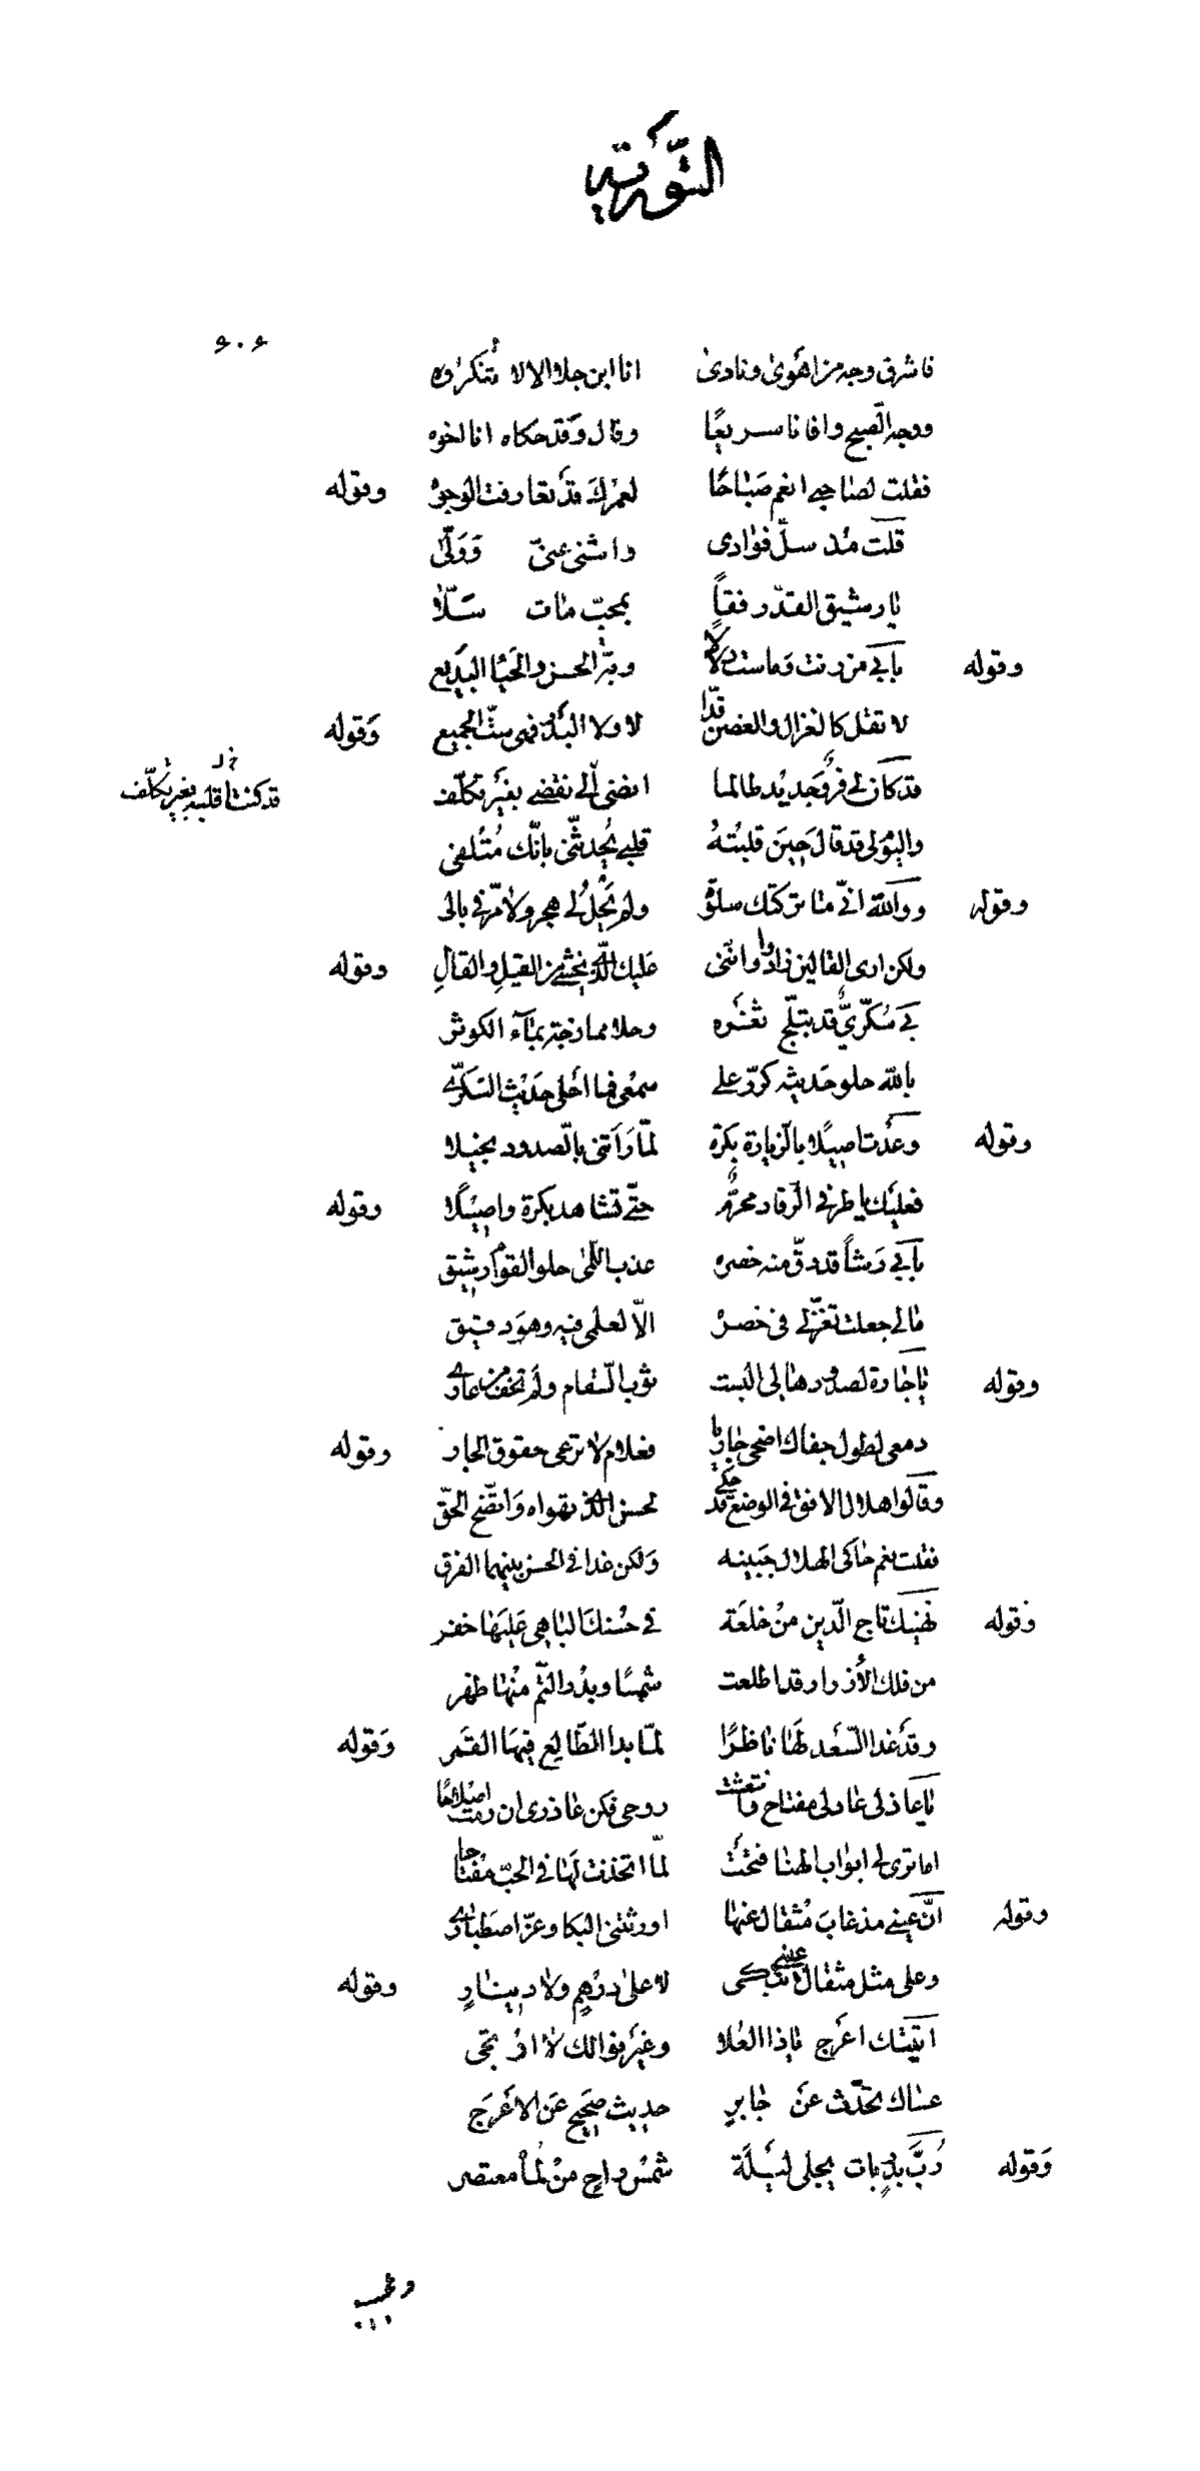 التورية
٤٠٤
فاشرق وجه من اهوى ونادى انا ابن جلا الا لا تنكروه
ووجه الصبح وافانا سريعًا وقال وقد حكاه انا اخوه
فقلت لصاحبي انعم صَبَاحًا لعمرك قد تعارفت الوجوه وقوله
قلت مذ سلّ فوادى وانثنى عنّى وَوَلّى
يا رشيق القدّ رفقاً بمحبّ مات سَلّا
وقوله بابي من رنت وماست دلالا وبها الحسن والمحيا البديع
لا تقل كالغزال والغصن قدّا لا ولا البدر فهى ستّ الجميع وَقوله
قد كان لى فروجديد طالما افضى الى نقضى بغير تكلّف
قد كنت اقلبه بغير تكلّف
واليوم لى قد قال حِينَ قلبتهُ قلبي يُحدثنى بانّك مُتلفى
وقوله ووالله انّى ما تركتك سلوة ولم يَحْلُ لى هجر ولا مرّ فى بالى
ولكن ارى القالين زادوا واننى عَليك الذى يخشى من القيلِ والقالِ وقوله
بي سُكّرىٌّ قد تبلّج ثغره وحلا مما زجته بمآء الكوثر
بالله حلو حَديثه كررّ على سمعى فما احَلى حَدِيث السكرّى
وقوله وعَدت اصيلًا بالزيارة بكرة لمّا رَاَتنى بالصدود بخيلا
فعليك يا طرفى الرقاد محرّمٌ حتّى تشاهد بكرة واصيلًا وقوله
بابي رَشأً قد دقّ منه خصره عذب اللّمى حلو القوام رشيق
مالى جعلت تغزّلى فى خصره الّا لعلمى فيه وهوَ دقيق
وقوله يا جارة لصدودها لى البست ثوب السقام ولم تخف من عارى
دمعى لطول جفاك اضحى جاريا فعلام لا ترعى حقوق الجار وقوله
وقالوا هلال الافق فى الوضع قد حكى لحسن الذى تهواه وَاتضّح الحَقّ
فقلت نعم حاكى الهلال جَبينه وَلكن غدا فى الحسن بينهما الفرق
وَقوله يَهنيك تاج الدّين منْ خلعَة فى حُسنكَ الباهى عَليهَا خفر
من فلك الأزرار قد اطلعت شمسًا وبدُر التّم منْها ظهر
وقد غدا السّعد لهَا ناظرًا لمّا بدا الطّالع فيهَا القمر وَقوله
يا عاذلى عادلى مفتاح وانتعشت روحى فكن عاذرى ان رمت اصلاحًا
اما ترى لى ابواب الهنا فتحَت لمّا اتخذت لهَا فى الحبّ مفتاحا
وقوله انّ عينى مذ غابَ مُثقال عنها اورثتنى البكا وعزّ اصطبارى
وعلى مثل مثقال عينى تبكى لا على دِرْهمٍ ولا دينارٍ وقوله
اتيتك اعَرج ياذا العُلا وغيرَ نوالك لا ارْتجى
عساك تحدّث عنَ جابرٍ حديث صَحيح عَن الاعَرج
وَقوله رُبَّ بدرٍ بات يجلى ليلَة شمسُ راحٍ منْ لما معتصر